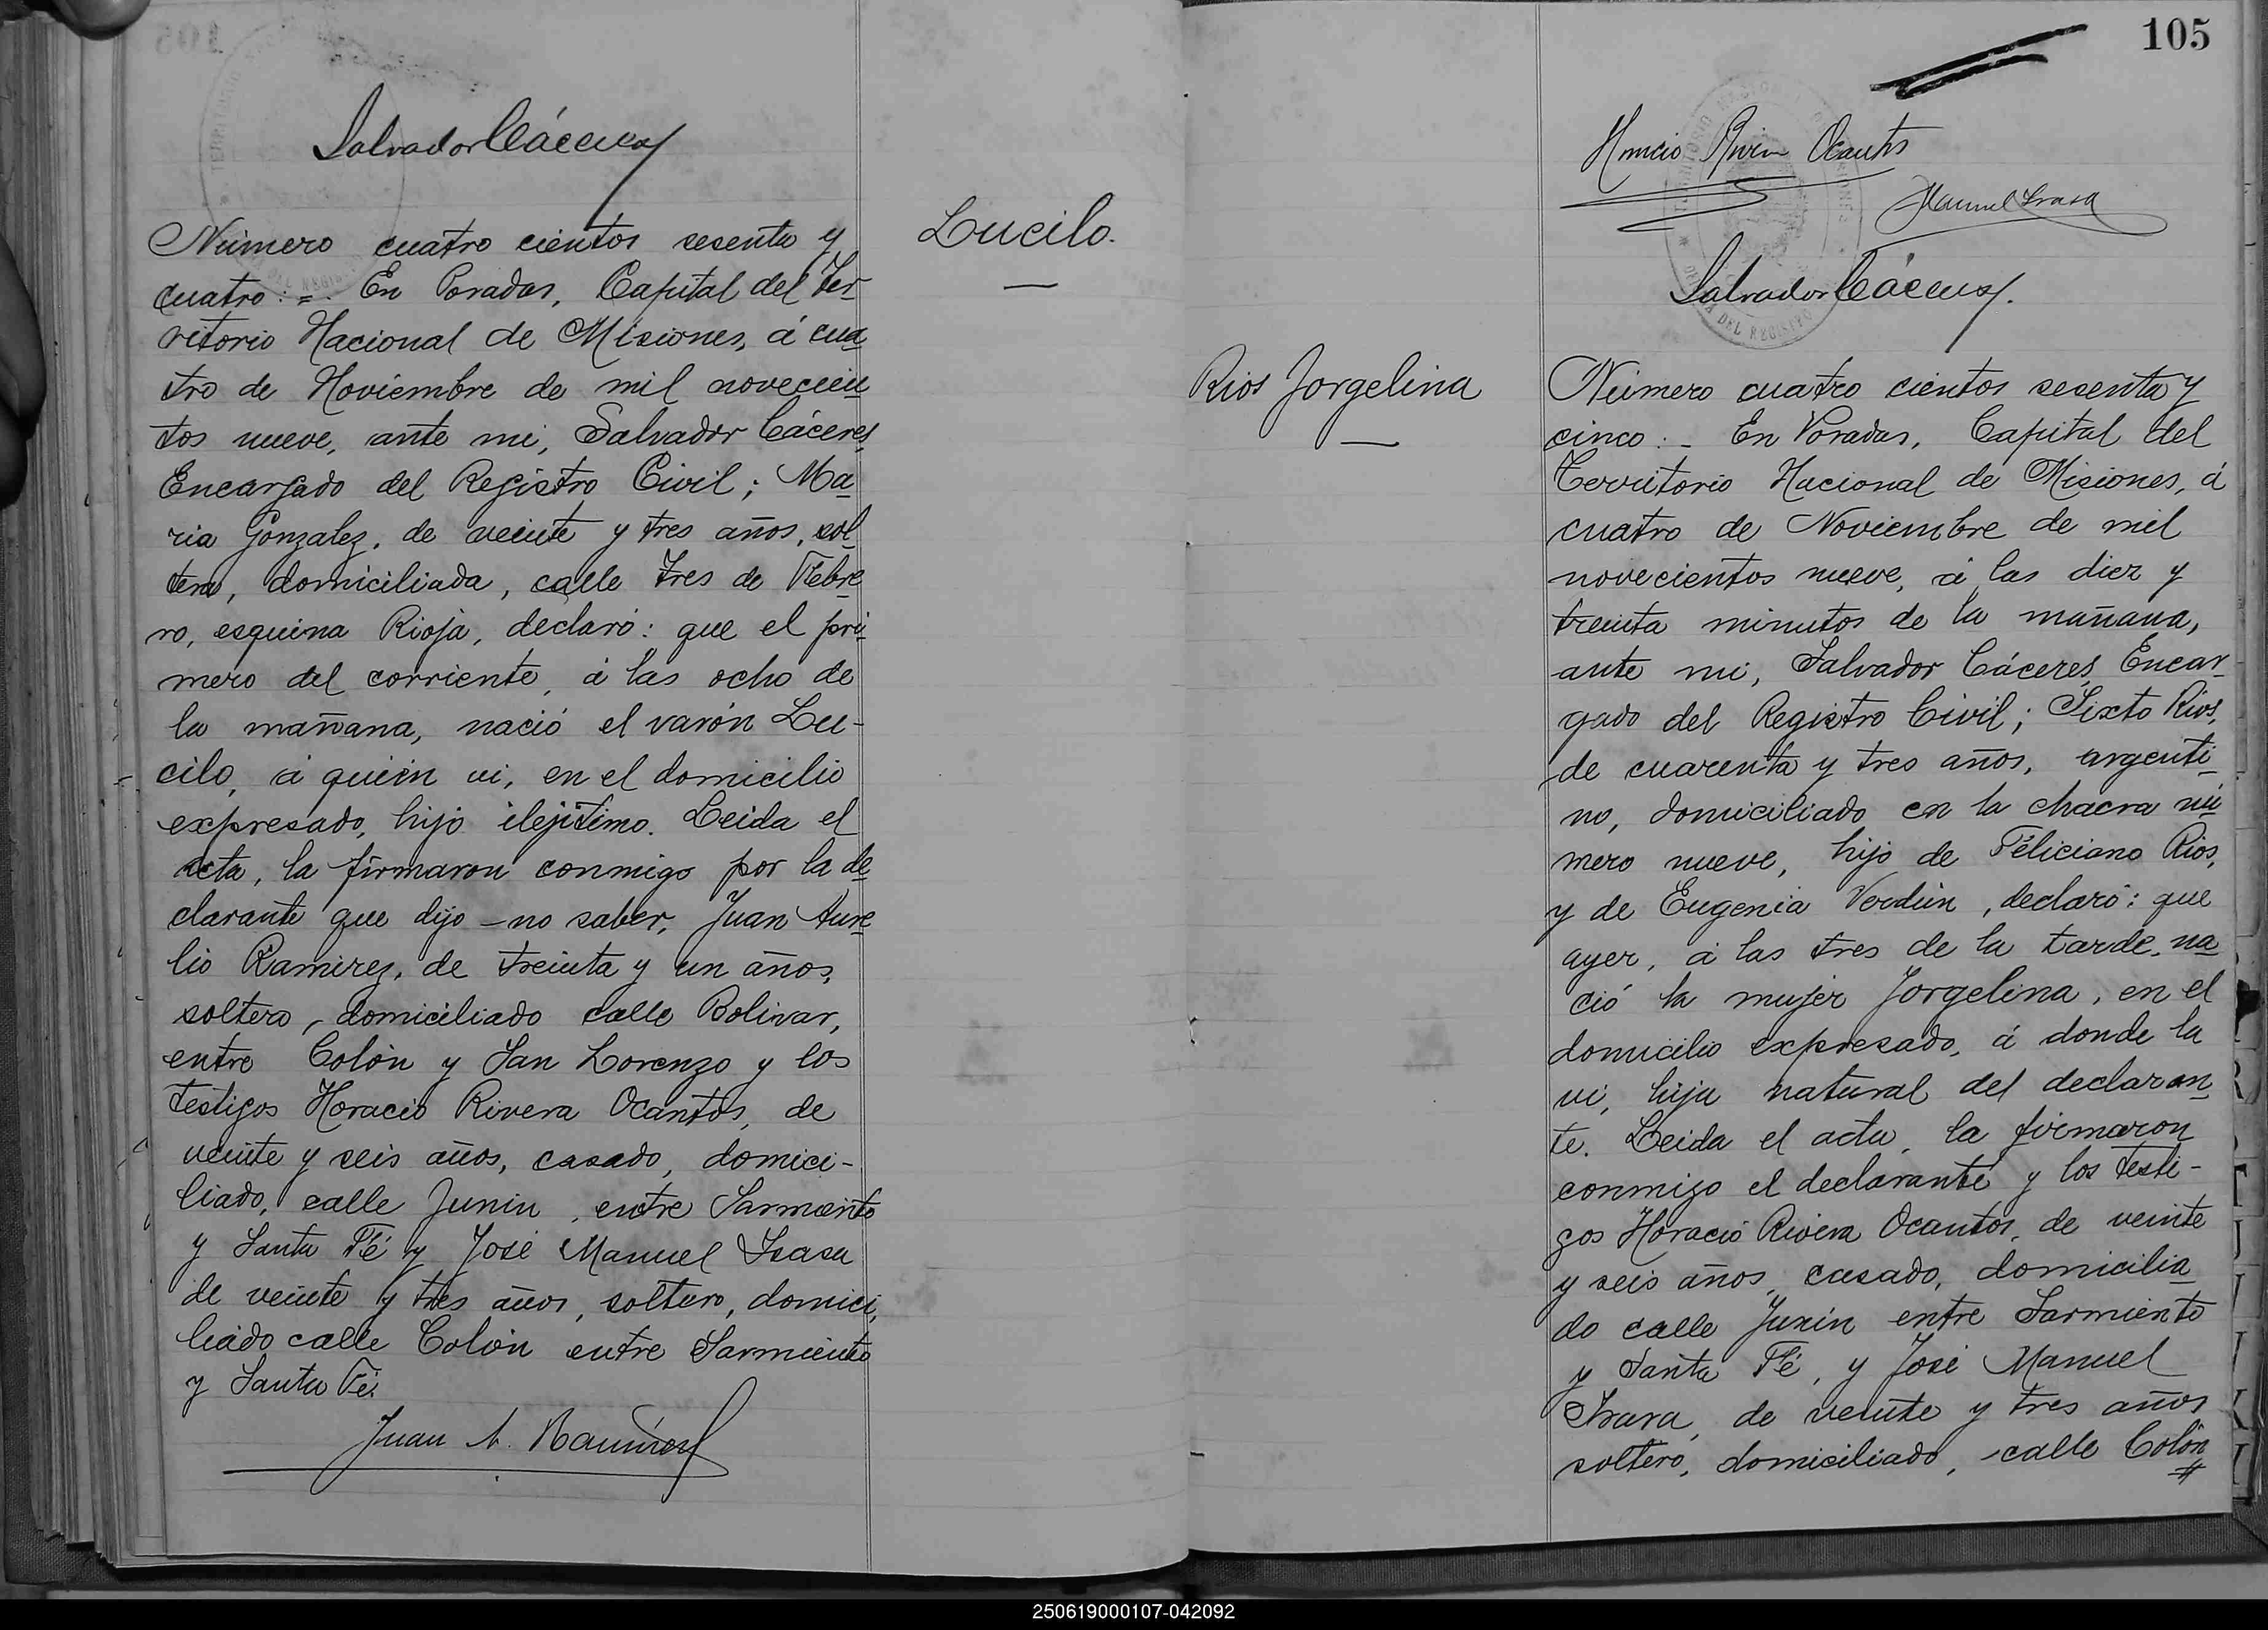 Salvador Cáceres
Número cuatro cientos sesenta y
cuatro := En Posadas, Capital del Ter-
ritorio Nacional de Misiones, á cua
tro de Noviembre de mil novecien
tos nueve, ante mi, Salvador Cáceres
Encargado del Registro Civil; Ma
ria Gonzalez, de veinte y tres años, sol
tera, domiciliada, calle Tres de Febre
ro, esquina Rioja, declaró: que el pri
mero del corriente, á las ocho de
la mañana, nació el varón Lu-
cilo, á quién vi, en el domicilio
expresado, hijo ilejitimo. Leida el
acta, la firmaron conmigo por la de
clarante que dijo no saber, Juan Aure
lio Ramirez, de treinta y un años,
soltero, domiciliado calle Bolivar,
entre Colón y San Lorenzo y los
testigos Horacio Rivera Ocantos, de
veinte y seis años, casado, domici-
liado, calle Junin, entre Sarmiento
y Santa Fé y José Manuel Isasa
de veinte y tres años, soltero, domici,
liado calle Colón entre Sarmiento
y Santa Fé.
Juan A. Ramirez
Lucilo.
105
Horacio Rivera Ocantos
Manuel Isasa
Salvador Cáceres.
Rios Jorgelina
Número cuatro cientos sesenta y
cinco:- En Posadas, Capital del
Territorio Nacional de Misiones, á
cuatro de Noviembre de mil
novecientos nueve, á las diez y
treinta minutos de la mañana,
ante mi, Salvador Cáceres, Encar-
gado del Registro Civil; Sixto Rios,
de cuarenta y tres años, argenti
no, domiciliado en la chacra nú
mero nueve, hijo de Féliciano Rios,
y de Eugenia Verdún, declaró: que
ayer, á las tres de la tarde, na
ció la mujer Jorgelina, en el
domicilio expresado, á donde la
vi, hija natural del declaran
te. Leida el acta, la firmaron
conmigo el declarante y los testi-
gos Horacio Rivera Ocantos, de veinte
y seis años, casado, domicilia
do calle Junin entre Sarmiento
y Santa Fé, y José Manuel
Isasa, de veinte y tres años
soltero, domiciliado, calle Colón
250619000107-042092